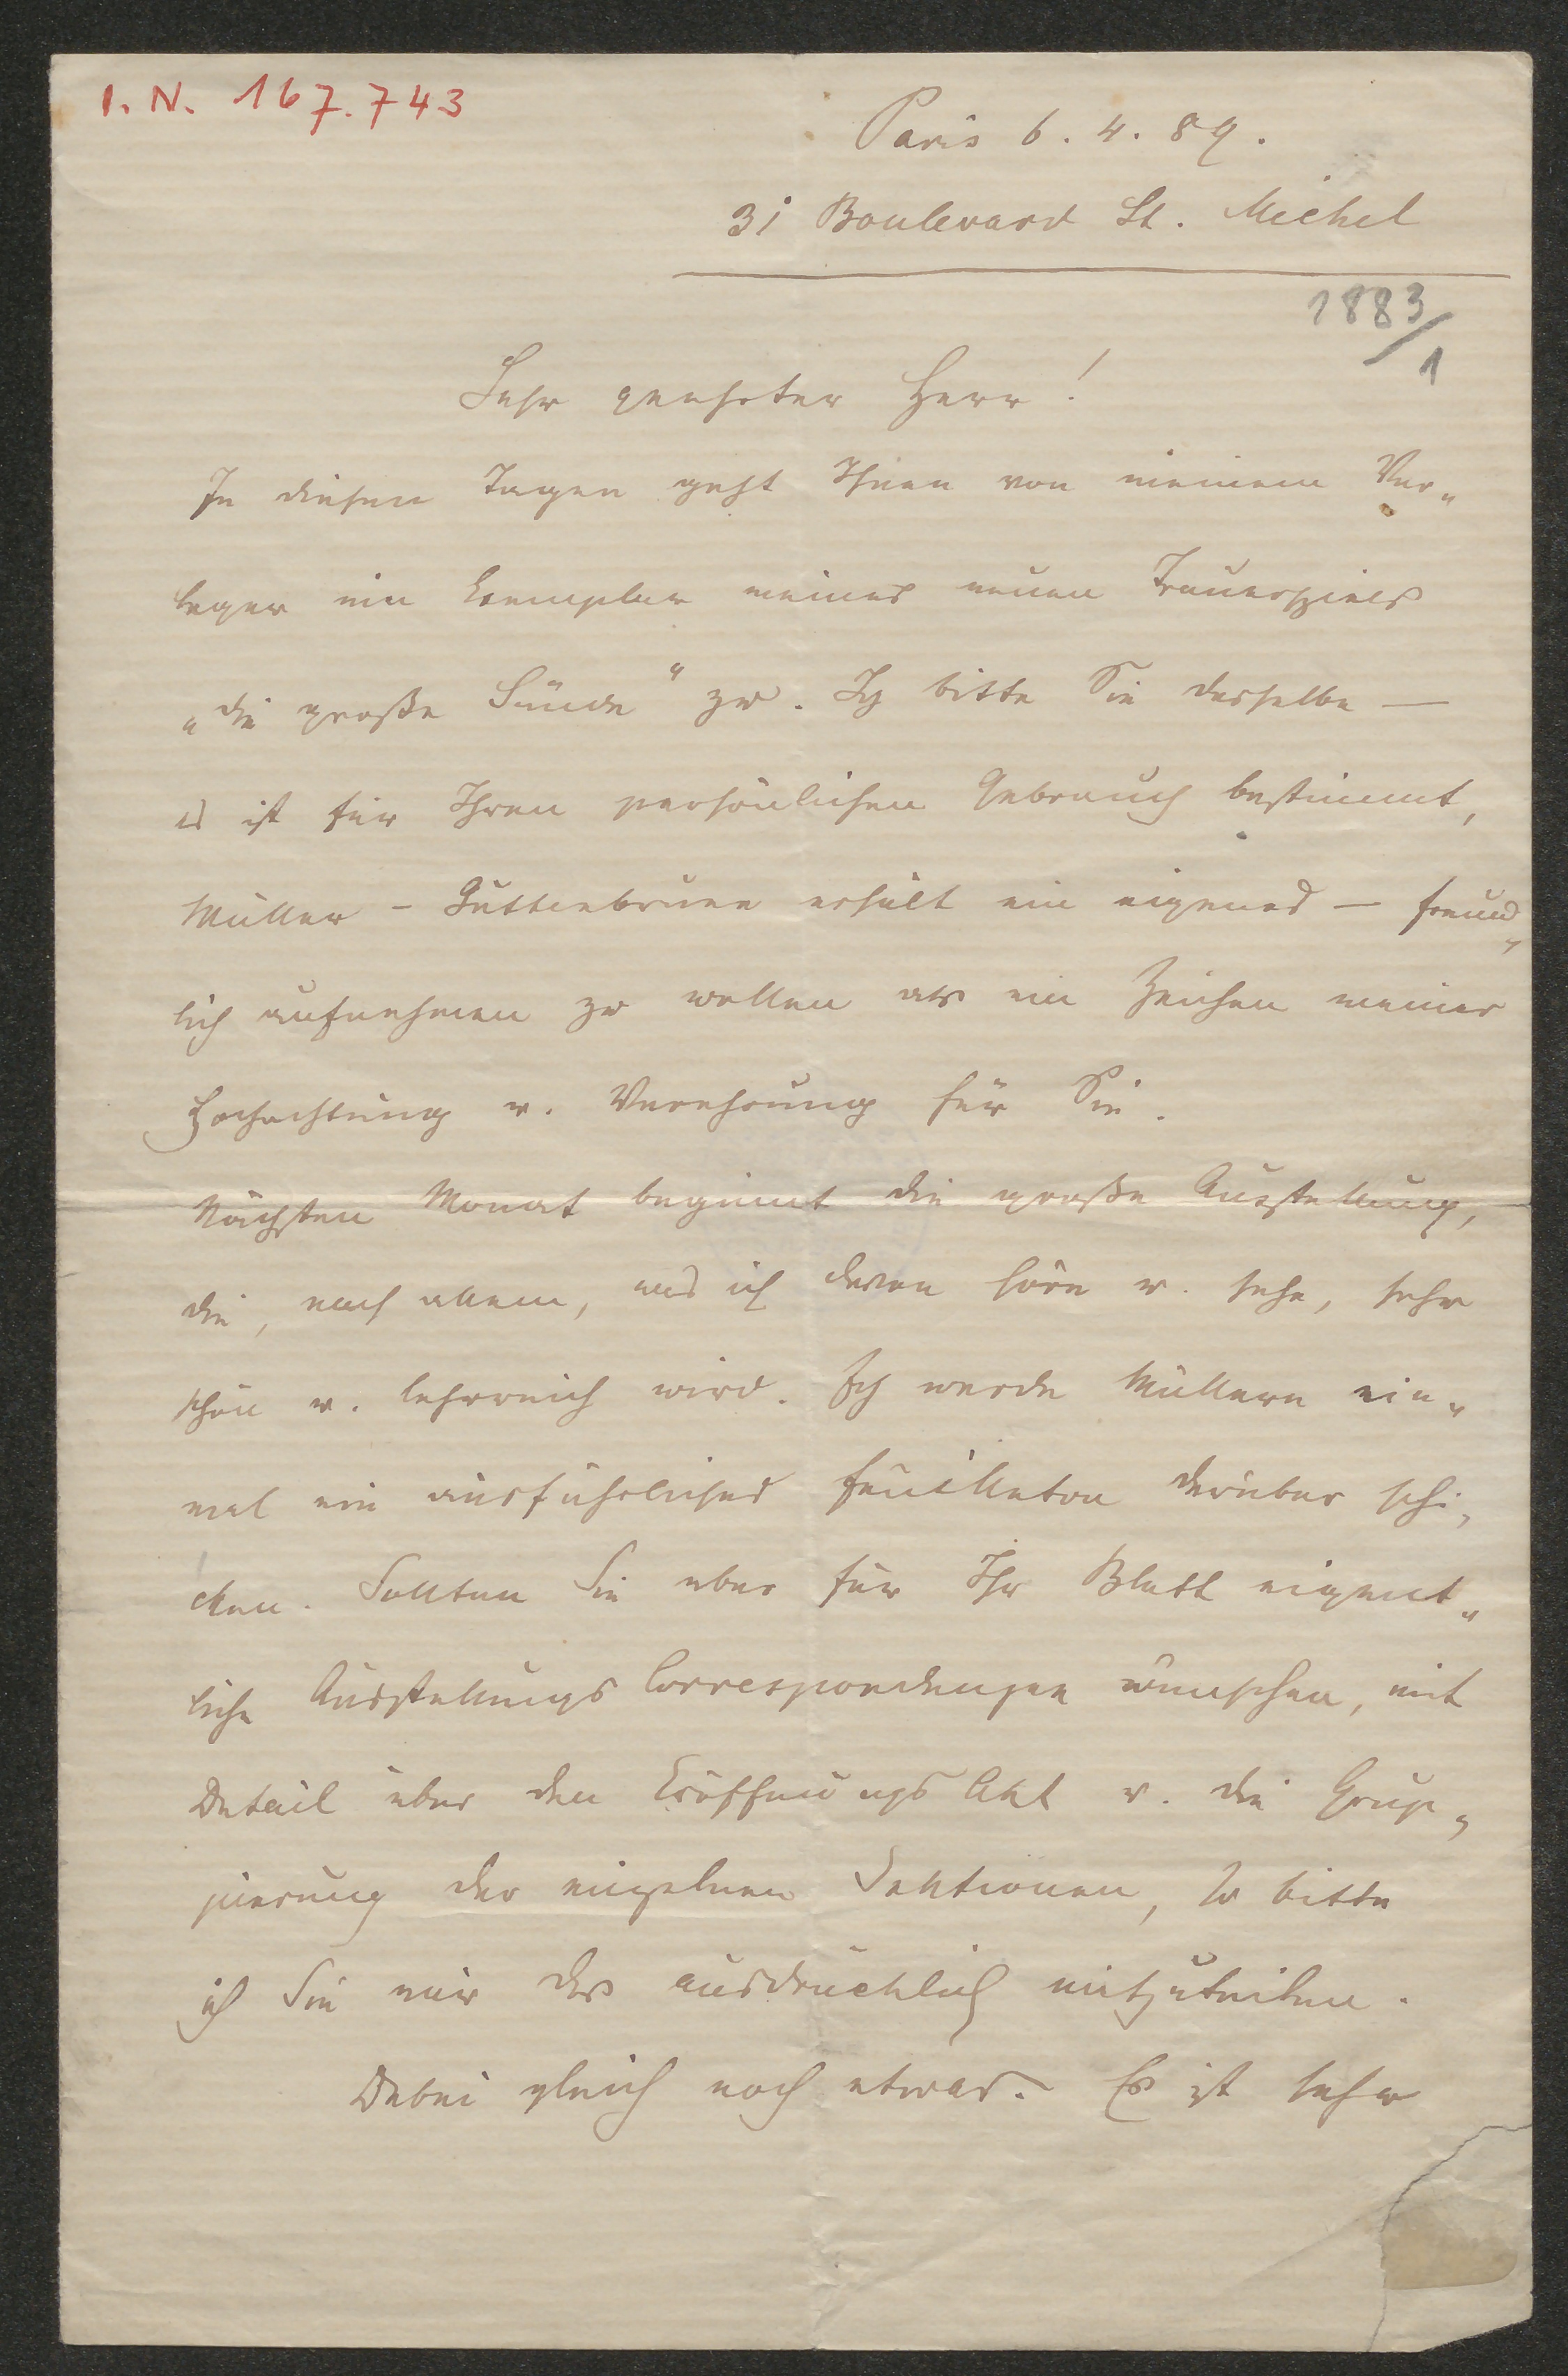 I. N. 167.743
Paris 6. 4. 89.
31 Boulevard St. Michel
1883/1
Sehr geehrter Herr!
In diesen Tagen geht Ihnen von meinem Ver„
leger ein Exemplar meines neuen Trauerspiels
„die große Sünde“ zu. Ich bitte Sie dasselbe —
es ist für Ihren persönlichen Gebrauch bestimmt,
Müller-Guttenbrunn erhält ein eigenes — freund„
lich aufnehmen zu wollen als ein Zeichen meiner
Hochachtung u. Verehrung für Sie.
Nächsten Monat beginnt die große Ausstellung,
die, nach allem, was ich davon höre u. sehe, sehr
schön u. lehrreich wird. Ich werde Müllern ein„
mal ein ausführliches Feuilleton darüber schi„
cken. Sollten Sie aber für Ihr Blatt eigent„
liche Ausstellungs Correspondenzen wünschen, mit
Detail über den Eröffnungs Akt u. die Grup„
pierung der einzelnen Sektionen, so bitte
ich Sie mir das ausdrücklich mitzuteilen.
Dabei gleich noch etwas. Es ist sehr